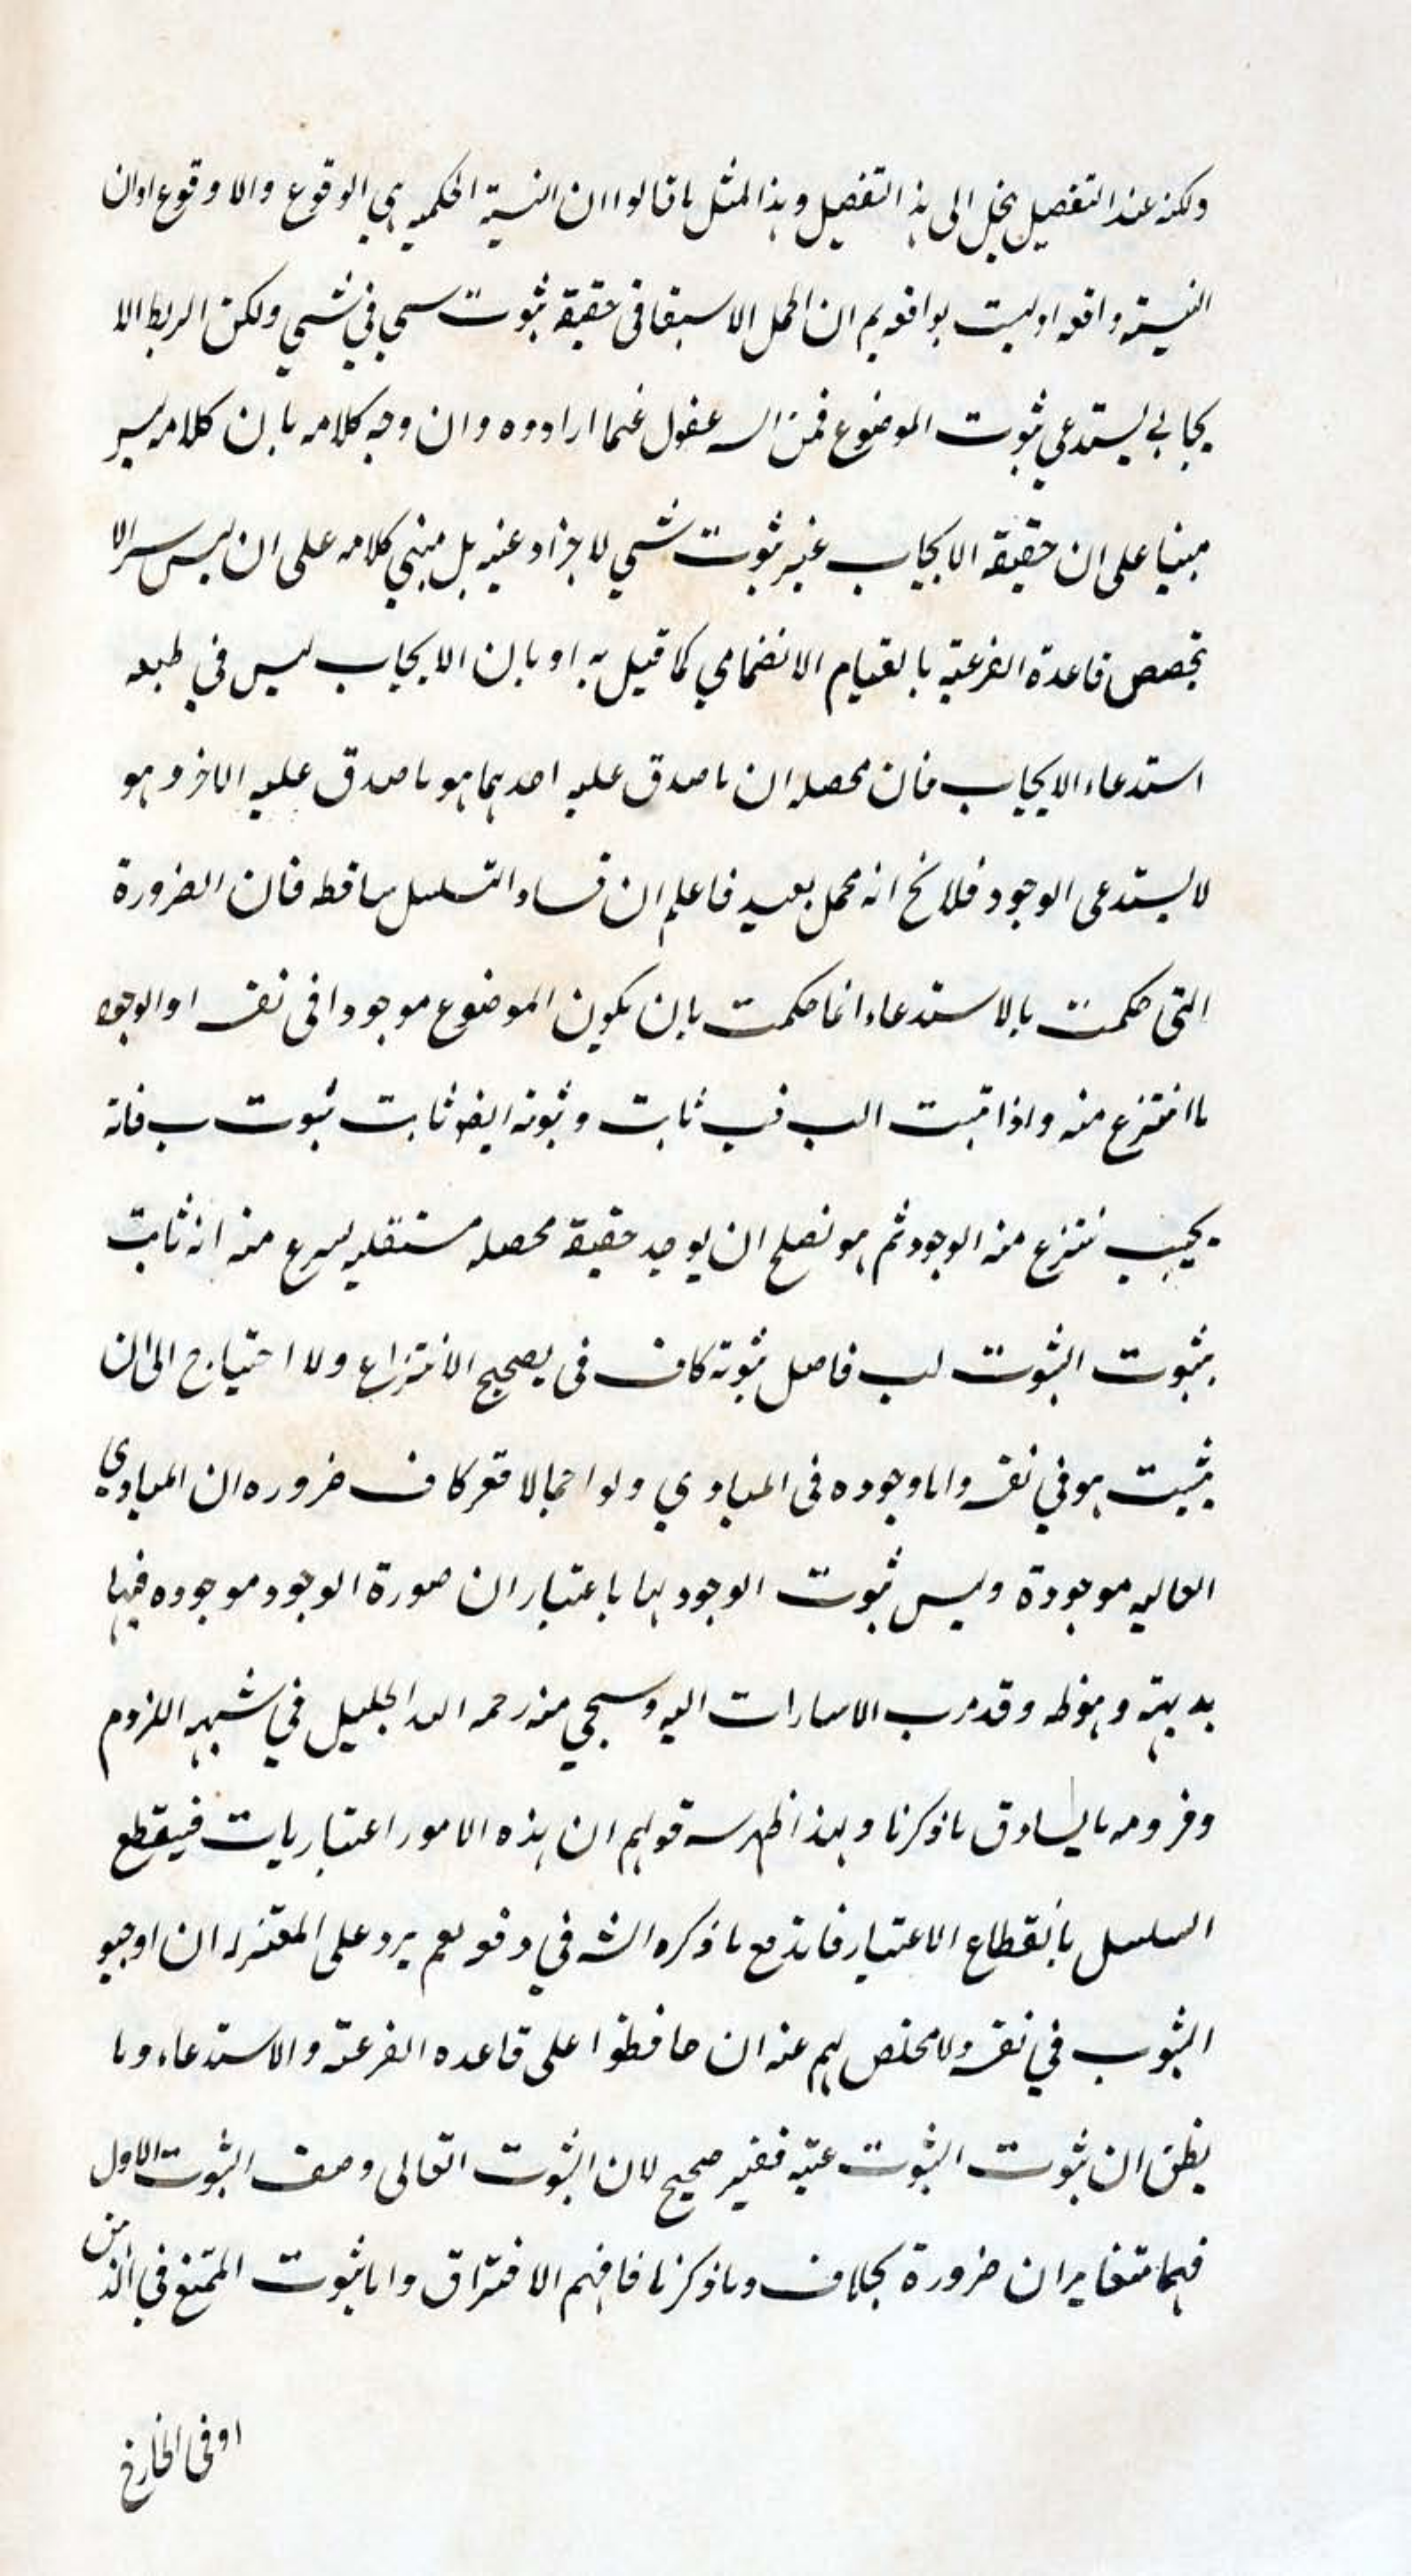 ولكنه عند التفصيل ينحل الى هذا التفصيل وهذا المثل ما قالوا ان النسبة الحكميه هي الوقوع والا وقوع او ان
النسبة واقعه او ليست بواقعه ان الحمل الا حقيقة ثبوت شي في شي ولكن الربط الا
يجابي يستدعي ثبوت الموضوع فمن عما ارادوه وان وجه كلامه بان كلامه ليس
مبنيا على ان حقيقة الايجاب غير ثبوت شي لاخر او عنه بل مبني كلامه على ان ليس الا
تخصص قاعدة الفرعيه بالقيام الانضمامي كما قيل به او بان الايجاب ليس في طبعه
استدعاء الايجاب فان محصله ان ما صدق عليه احدهما هو ما صدق عليه الاخر وهو
لا يستدعى الوجود فلا انه محمل بعيد فاعلم ان فساد التسلسل ساقطه فان الضرورة
التى حكمت بالاستدعاء انما حكمت بان يكون الموضوع موجودا فى نفسه او الوجود
ما انتزع منه واذا ثبت ثابت وثبوته ايضا ثابت ثبوت ب فانه
بحيث ينتزع منه الوجود ثم هو يصلح ان يوجد حقيقة محصله مستقليه منه انه ثابت
بثبوت الثبوت لب فاصل ثبوته كاف فى تصحيح الانتزاع ولا احتياج الى ان
يثبت هو في نفسه واما وجوده فى المبادي ولو اجمالا فغير كاف ضروره ان المبادي
العاليه موجودة وليس ثبوت الوجود لها باعتبار ان صورة الوجود موجوده فيها
بديهة وقد مرت الاشارات اليه وسيجي منه رحمه الله الجليل في شبهه اللزوم
ولزومه ما يساوق ما ذكرنا وبهذا ظهر سر قولهم ان هذه الامور اعتباريات فينقطع
السلسل بانقطاع الاعتبار فاندفع ما ذكره الشه في دفعه نعم يرد على المعتزله ان اوجبوا
الثبوت في نفسه ولا مخلص لهم عنه ان حافظوا على قاعده الفرعية والاستدعاء وما
يظن ان ثبوت الثبوت عينه فغير صحيح لان الثبوت الثانى وصف الثبوت الاول
فهما متغايران ضرورة بخلاف وما ذكرنا فافهم الافتراق واما ثبوت الممتنع في الذهن
او فى الخارج